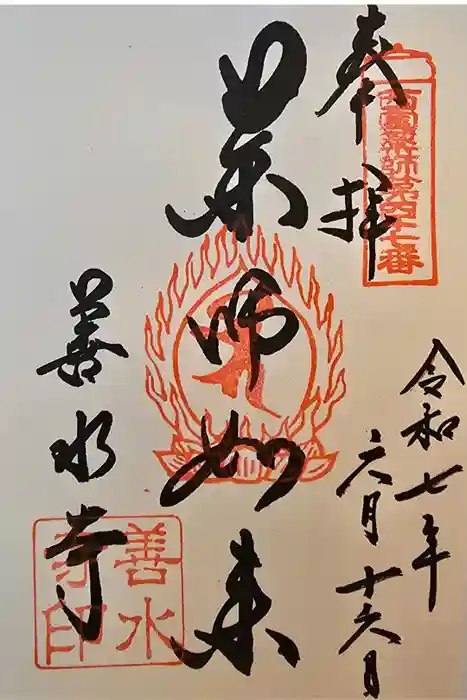 奉拝
西国薬師第四十七番
令和七年
六月十六日
薬師如来
善水寺
善水寺印